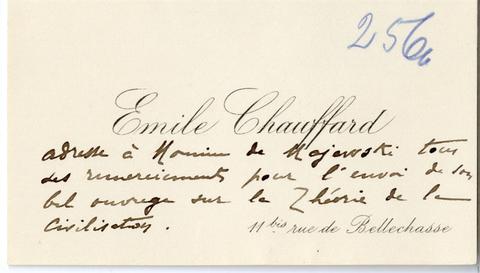 256
Emile Chauffard
adresse à Monsieur de Majewski tous
ses remerciements pour l'envoi de son
bel ouvrage sur la Théorie de la
Civilisation.
11bis rue de Bellechasse